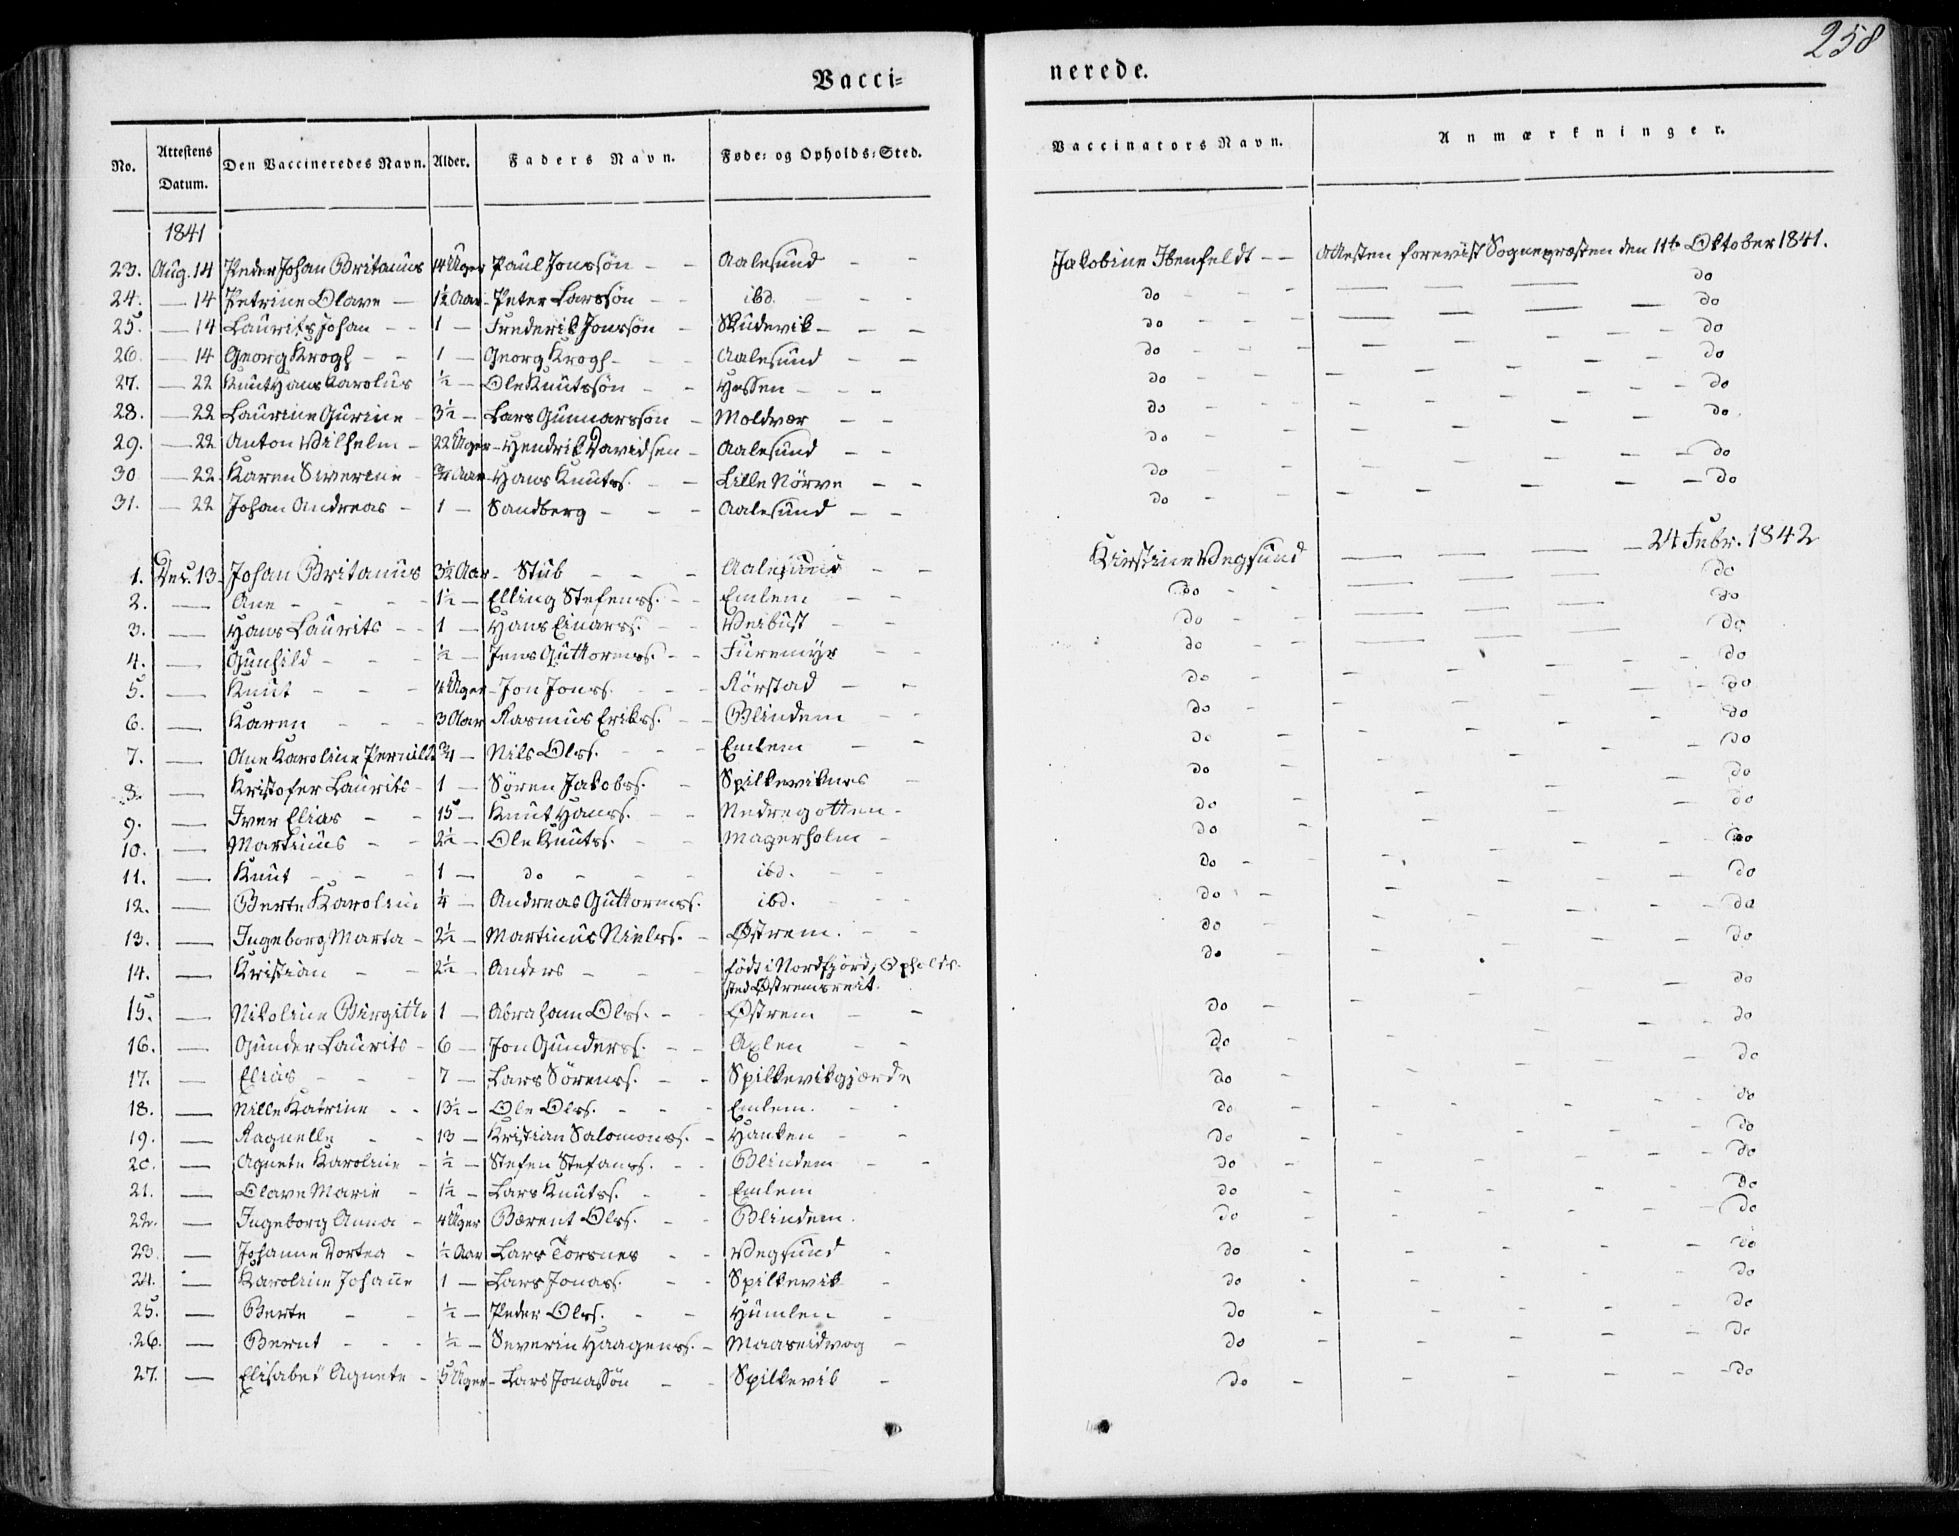 258
Vacci= nerede.
No. Attestens Datum. Den Vaccineredes Navn. Alder. Faders Navn. Føde= og Opholds=Sted. Vaccinators Navn. Anmærkninger.
1841
23. Aug. 14 Peder Johan Britanus 14 Uger Paul Jonssön - - Aalesund - - Jakobine Ibenfeldt - - Attesten foreviist Sognepræsten den 11te Oktober 1841.
24. — 14 Petrine Olave — 1½ Aar - Peter Larssön - - ibd. - - - do - - - — — — do
25. — 14 Laurits Johan - - 1 — Frederik Jonssön - Skudevik - - - do - - - — — — do
26. — 14 Georg Krogh - - 1 — Georg Krogh - - - Aalesund - - do - - - do
27. — 22 Knut Hans Karolus ½ — Ole Knutssön - - Hessen - - - do - - - do
28. — 22 Laurine Gurine - 3½ — Lars Gunnarssön - Moldvær - - do - - - do
29. — 22 Anton Wilhelm - 22 Uger - Hendrik Davidsen - Aalesund - - do - - - do
30 — 22 Karen Siverine - ¾ Aar - Hans Knuts. - - Lille Nörve - - do - - - do
31. — 22 Johan Andreas - 1 — Sandberg - - - Aalesund - - do - - - do
1. Dec. 13. Johan Britanus 3½ Aar - Stub - - - Aalesund - - Kirstine Vegsund — — — 24 Febr. 1842
2. — Ane - - - - 1½ — Elling Stefens. - - Emlem - - do - - — — — do
3. — Hans Laurits - - 1 — Hans Einars. - - Veibust - - do - - — — — do
4. — Gunhild - - - ½ — Jens Guttorms. - - Furemyr - - do - - — — — do
5. — Knut - - - 14 Uger - Jon Jons. - - - Rörstad - - do - - - do
6. — Karen - - - 3 Aar Rasmus Eriks. - - Blindem - - do - - - do
7. — Ane Karoline Pernille ¾ — Nils Ols. - - - Emlem - - do - - - do
8. — Kristofer Laurits - 1 — Sören Jakobs. - Spilkeviknes - do - - - do
9. — Iver Elias - - 15 — Knut Hans. - - Nedregotten - do - - - do
10. — Martinus - - 2½ — Ole Knuts. - - Magerholm - do - - - do
11. — Knut - - - 1 — do - - - ibd. - - do - - - do
12. — Berte Karoline ¼ — Andreas Guttorms. ibd. - - - do - - - do
13. — Ingeborg Marta - 2½ — Martinus Niels. - Østrem. - - do - - - do
14. — Kristian - - 2½ — Anders - - - födt i Nordfjord, Opholds-
sted Østremsreit. do - - - do
15. — Nikoline Birgitte 1 — Abraham Ols. - - Østrem - - do - - - do
16. — Gunder Laurits - 6 — Jon Gunders. - - Axlen - - do - - - do
17. — Elias - - - 7 — Lars Sörens. - - Spilkevikgjærde do - - - do
18. — Nille Katrine - - 13½ - Ole Ols. - - - Emlem. - - do - - - do
19. — Ragnelle - - 13 — Kristian Salomons. - Hanken - - do - - - do
20. — Agnete Karoline - ½ — Stefen Stefans. - - Blindem - - do - - - do
21. — Olave Marie - 1½ — Lars Knuts. - - Emlem do - - - do
22. — Ingeborg Anna - 4 Uger Bærent Ols. - - Blindem. do - - - do
23. — Johanne Dortea - ½ Aar Lars Torsnes - - Vegsund - do - - - do
24. — Karoline Johanne 1 — Lars Jonas. - - Spilkevik - do - - - do
25. — Berte - - ½ — Peder Ols. - - Humlen - do - - - do
26. — Bernt - - - ½ — Severin Haagens. - Maaseidvog - do - - - do
27. — Elisabet Agnete - 5 Uger - Lars Jonassön - - Spilkevik - do - - - do